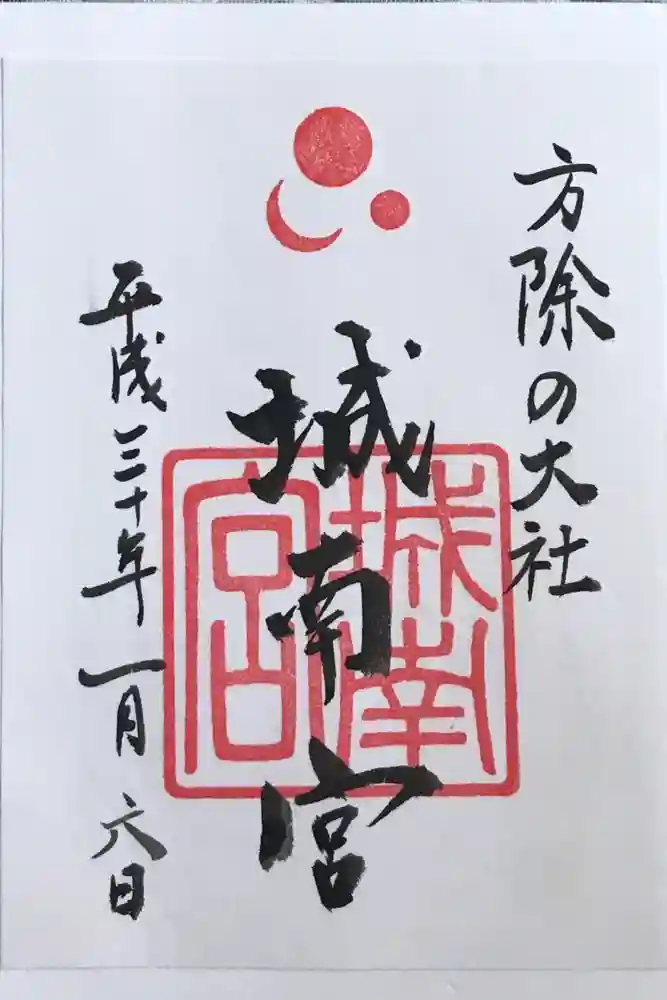 方除の大社
城南宮
城南宮
平成三十年一月六日